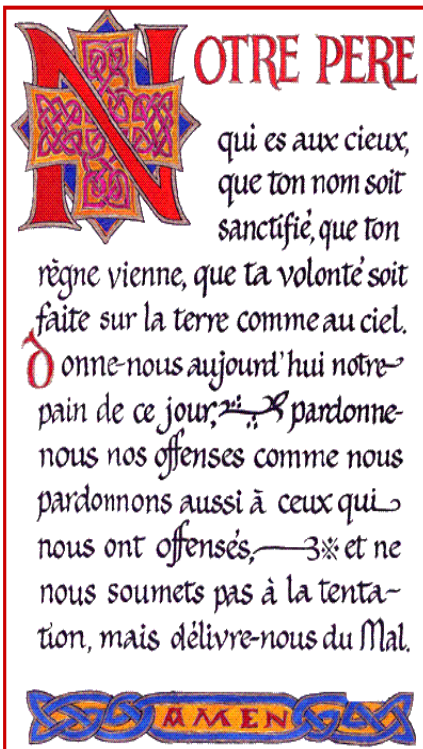 NOTRE PERE
qui es aux cieux,
que ton nom soit
sanctifié, que ton
règne vienne, que ta volonté soit
faite sur la terre comme au ciel.
Donne-nous aujourd'hui notre
pain de ce jour, pardonne-
nous nos offenses comme nous
pardonnons aussi à ceux qui
nous ont offensés, et ne
nous soumets pas à la tenta-
tion, mais délivre-nous du Mal.
AMEN